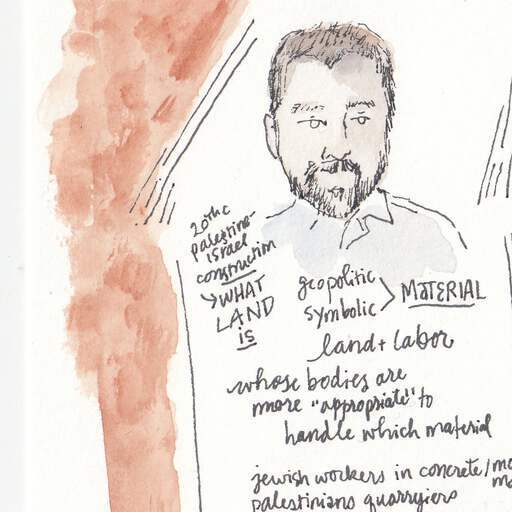 20th c
palestine-
israel
construction
WHAT
LAND
is
geopolitic
symbolic
MATERIAL
land + labor
whose bodies are
more "appropriate" to
handle which material
jewish workers in concrete/
palestinians quarryiers